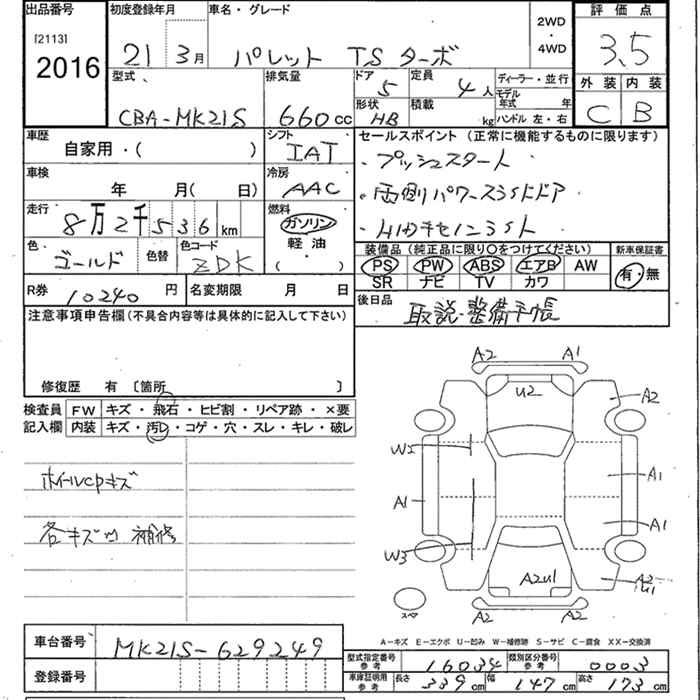 出品番号 初度登録年月 車名・グレード 2WD・4WD 評価点
[2113] 2016 21 3月 パレット TSターボ 3.5
型式 排気量 ドア 5 定員 4人 ディーラー・並行 外装 内装
CBA-MK21S 660cc 形状 HB 積載 kg モデル年式 年 ハンドル 左・右 C B
車歴 自家用・( ) シフト IAT セールスポイント (正常に機能するものに限ります)
・プッシュスタート
車検 年 月( 日) 冷房 AAC ・両側パワースライドドア
走行 8万2千536km 燃料 ガソリン 軽油 ・( )
色 ゴールド 色替 色コード ZDK
装備品(純正品に限り○をつけてください) 新車保証書
PS PW ABS エアB AW 有・無
SR ナビ TV カワ
R券 10240円 名変期限 月 日 後日品 取説・整備手帳
注意事項申告欄(不具合内容等は具体的に記入して下さい)
修復歴 有 [箇所 ]
検査員 FW キズ・飛石・ヒビ割・リペア跡・×要
記入欄 内装 キズ・汚レ・コゲ・穴・スレ・キレ・破レ
ホイールcpキズ
各キズ凹 補修
A2 A1
U2 A2
W2
A1 A1
A1
W3
A2U1 A2 U1
スペア A2 A1
A-キズ E-エクボ U-凹み W-補修跡 S-サビ C-腐食 XX-交換済
車台番号 MK21S-629249
型式指定番号 参考 16034 類別区分番号 参考 0003
登録番号 車庫証明用 参考 長さ 339cm 幅 147cm 高さ 173cm